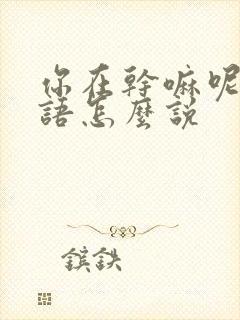 你在幹嘛呢
語怎麼說
鑌鉄